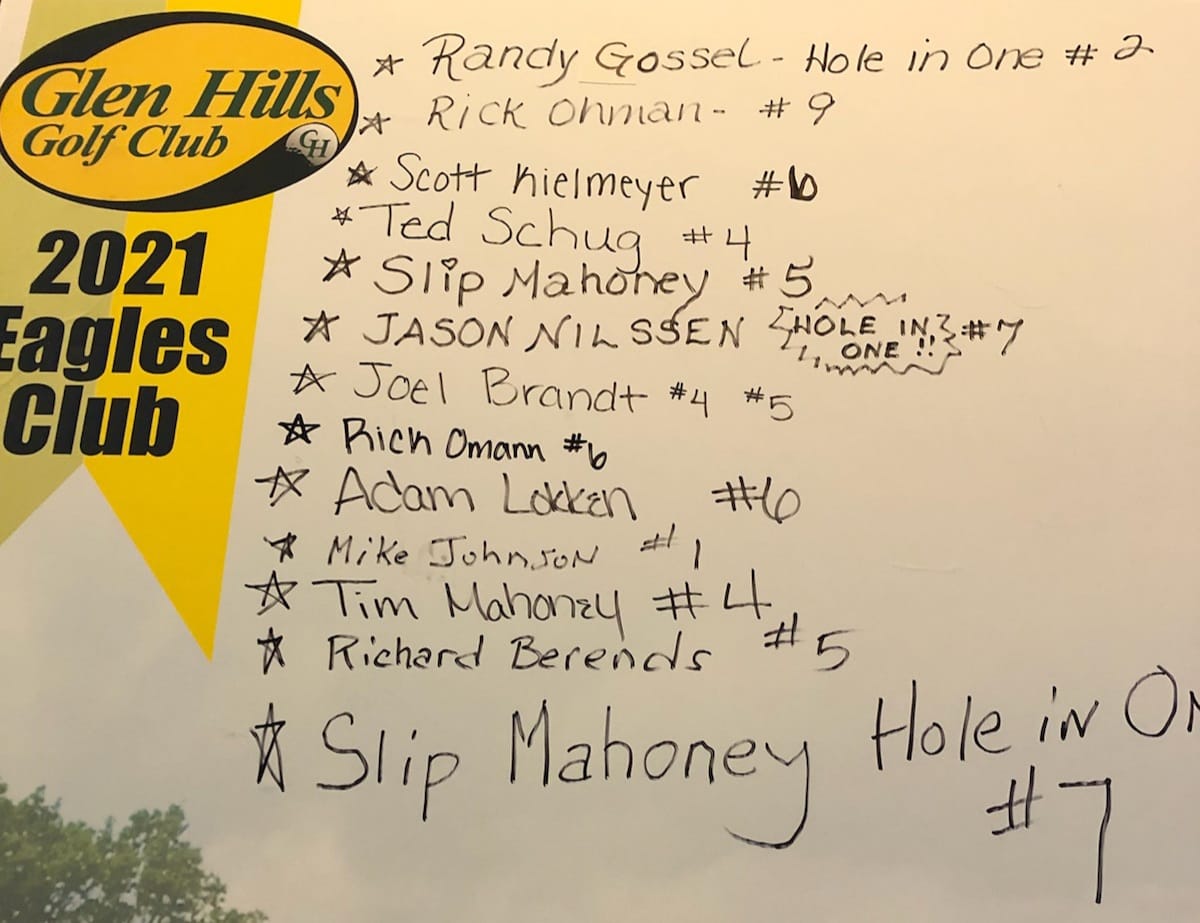 Glen Hills
Golf Club
GH
2021
Eagles
Club
Randy Gossel - Hole in One # 2
Rick Ohman - # 9
Scott Kielmeyer #6
Ted Schug #4
Slip Mahoney #5
JASON NILSSEN HOLE IN ONE !! #7
Joel Brandt #4 #5
Rich Omann #6
Adam Lokken #6
Mike Johnson #1
Tim Mahoney #4
Richard Berends #5
Slip Mahoney Hole in On
#7